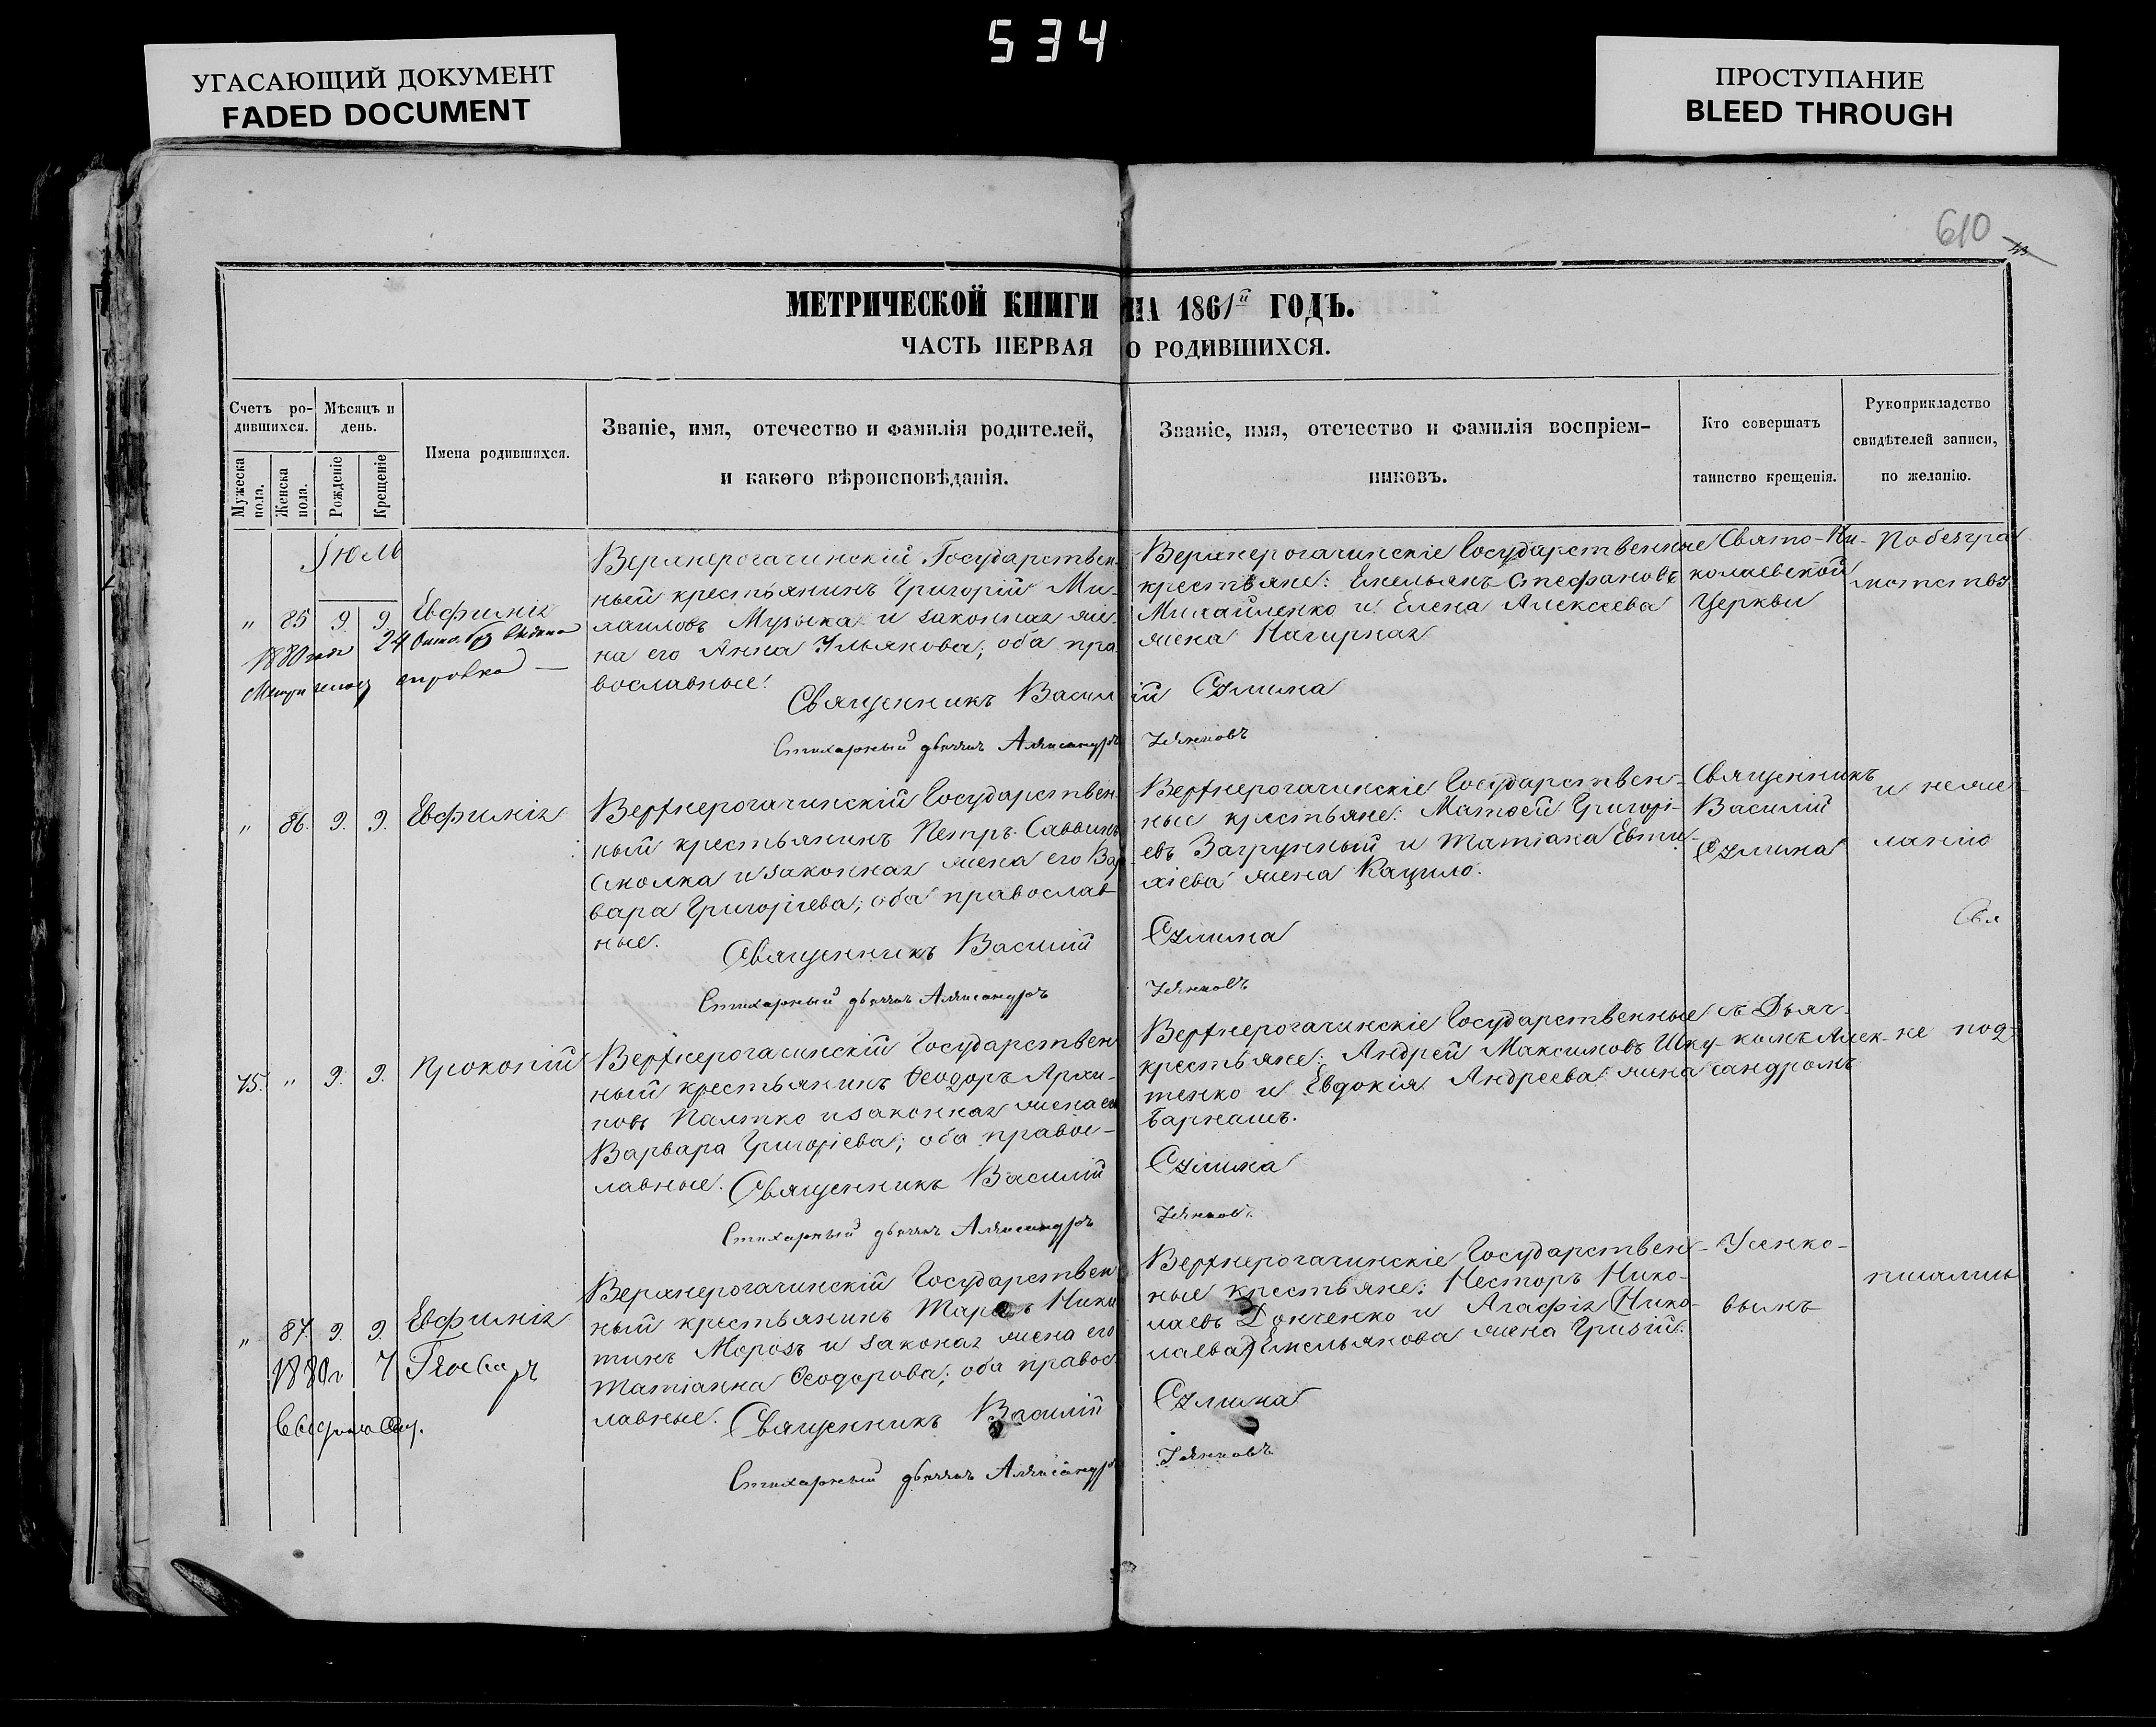 534
УГАСАЮЩИЙ ДОКУМЕНТ
FADED DOCUMENT
ПРОСТУПАНИЕ
BLEED THROUGH
610
МЕТРИЧЕСКОЙ КНИГИ НА 1861й ГОДЪ.
ЧАСТЬ ПЕРВАЯ О РОДИВШИХСЯ.
Счетъ ро-
дившихся.
Мужеска пола.
Женска пола.
Мѣсяцъ и
день.
Рожденіе
Крещеніе
Имена родившихся.
Званіе, имя, отечество и фамилія родителей,
и какого вѣроисповѣданія.
Званіе, имя, отечество и фамилія воспріем-
никовъ.
Кто совершатъ
таинство крещенія.
Рукоприкладство
свидѣтелей записи,
по желанію.
Іюль
" 85 9. 9. Евфимія
1880 года 24 выдана
справка
Верхнерогачинскій Государствен-
ный крестьянинъ Григорій Ми-
хаиловъ Музыка и законная же-
на его Анна Ульянова; оба пра-
вославные.
Священникъ Василій Слима
Стихарный дьячекъ Александръ Усенковъ
Верхнерогачинскіе Государственные
крестьяне: Емельянъ Стефановъ
Михайленко и Елена Алексеева
жена Нагирная
Свято-Ни-
колаевской
Церкви
По безгра
мотству
" 86. 9. 9. Евфимія
Верхнерогачинскій Государствен-
ный крестьянинъ Петръ Саввинъ
Смолка и законная жена его Вар
вара Григоріева; оба православ-
ные.
Священникъ Василій
Стихарный дьячекъ Александръ
Верхнерогачинскіе Государствен-
ные крестьяне: Матѳей Григорі-
евъ Загрунный и Татіана Евти-
хіева жена Кацило.
Слима
Усенковъ
Священникъ
Василій
Слима
и неже-
ланію
75. " 9. 9. Прокопій
Верхнерогачинскій Государствен
ный крестьянинъ Ѳеодоръ Архи-
повъ Палтко и законная жена его
Варвара Григоріева; оба правос-
лавные.
Священникъ Василій
Стихарный дьячекъ Александръ
Верхнерогачинскіе Государственные
крестьяне: Андрей Максимовъ Шку-
тенко и Евдокія Андреева жена
Барнашъ.
Слима
Усенковъ
съ Дьяч-
комъ Алек-
сандромъ
не под-
" 87. 9. 9. Евфимія
Верхнерогачинскій Государствен
ный крестьянинъ Тарасъ Ники
тинъ Морозъ и законая жена его
Татіанна Ѳеодорова; оба правос-
лавные.
Священникъ Василій
Стихарный дьячекъ Александръ
Верхнерогачинскіе Государствен-
ные крестьяне: Несторъ Нико-
лаевъ Донченко и Агафія (Нико-
лаева) Емельянова жена Гризій.
Слима
Усенковъ
Усенко-
вымъ
писались